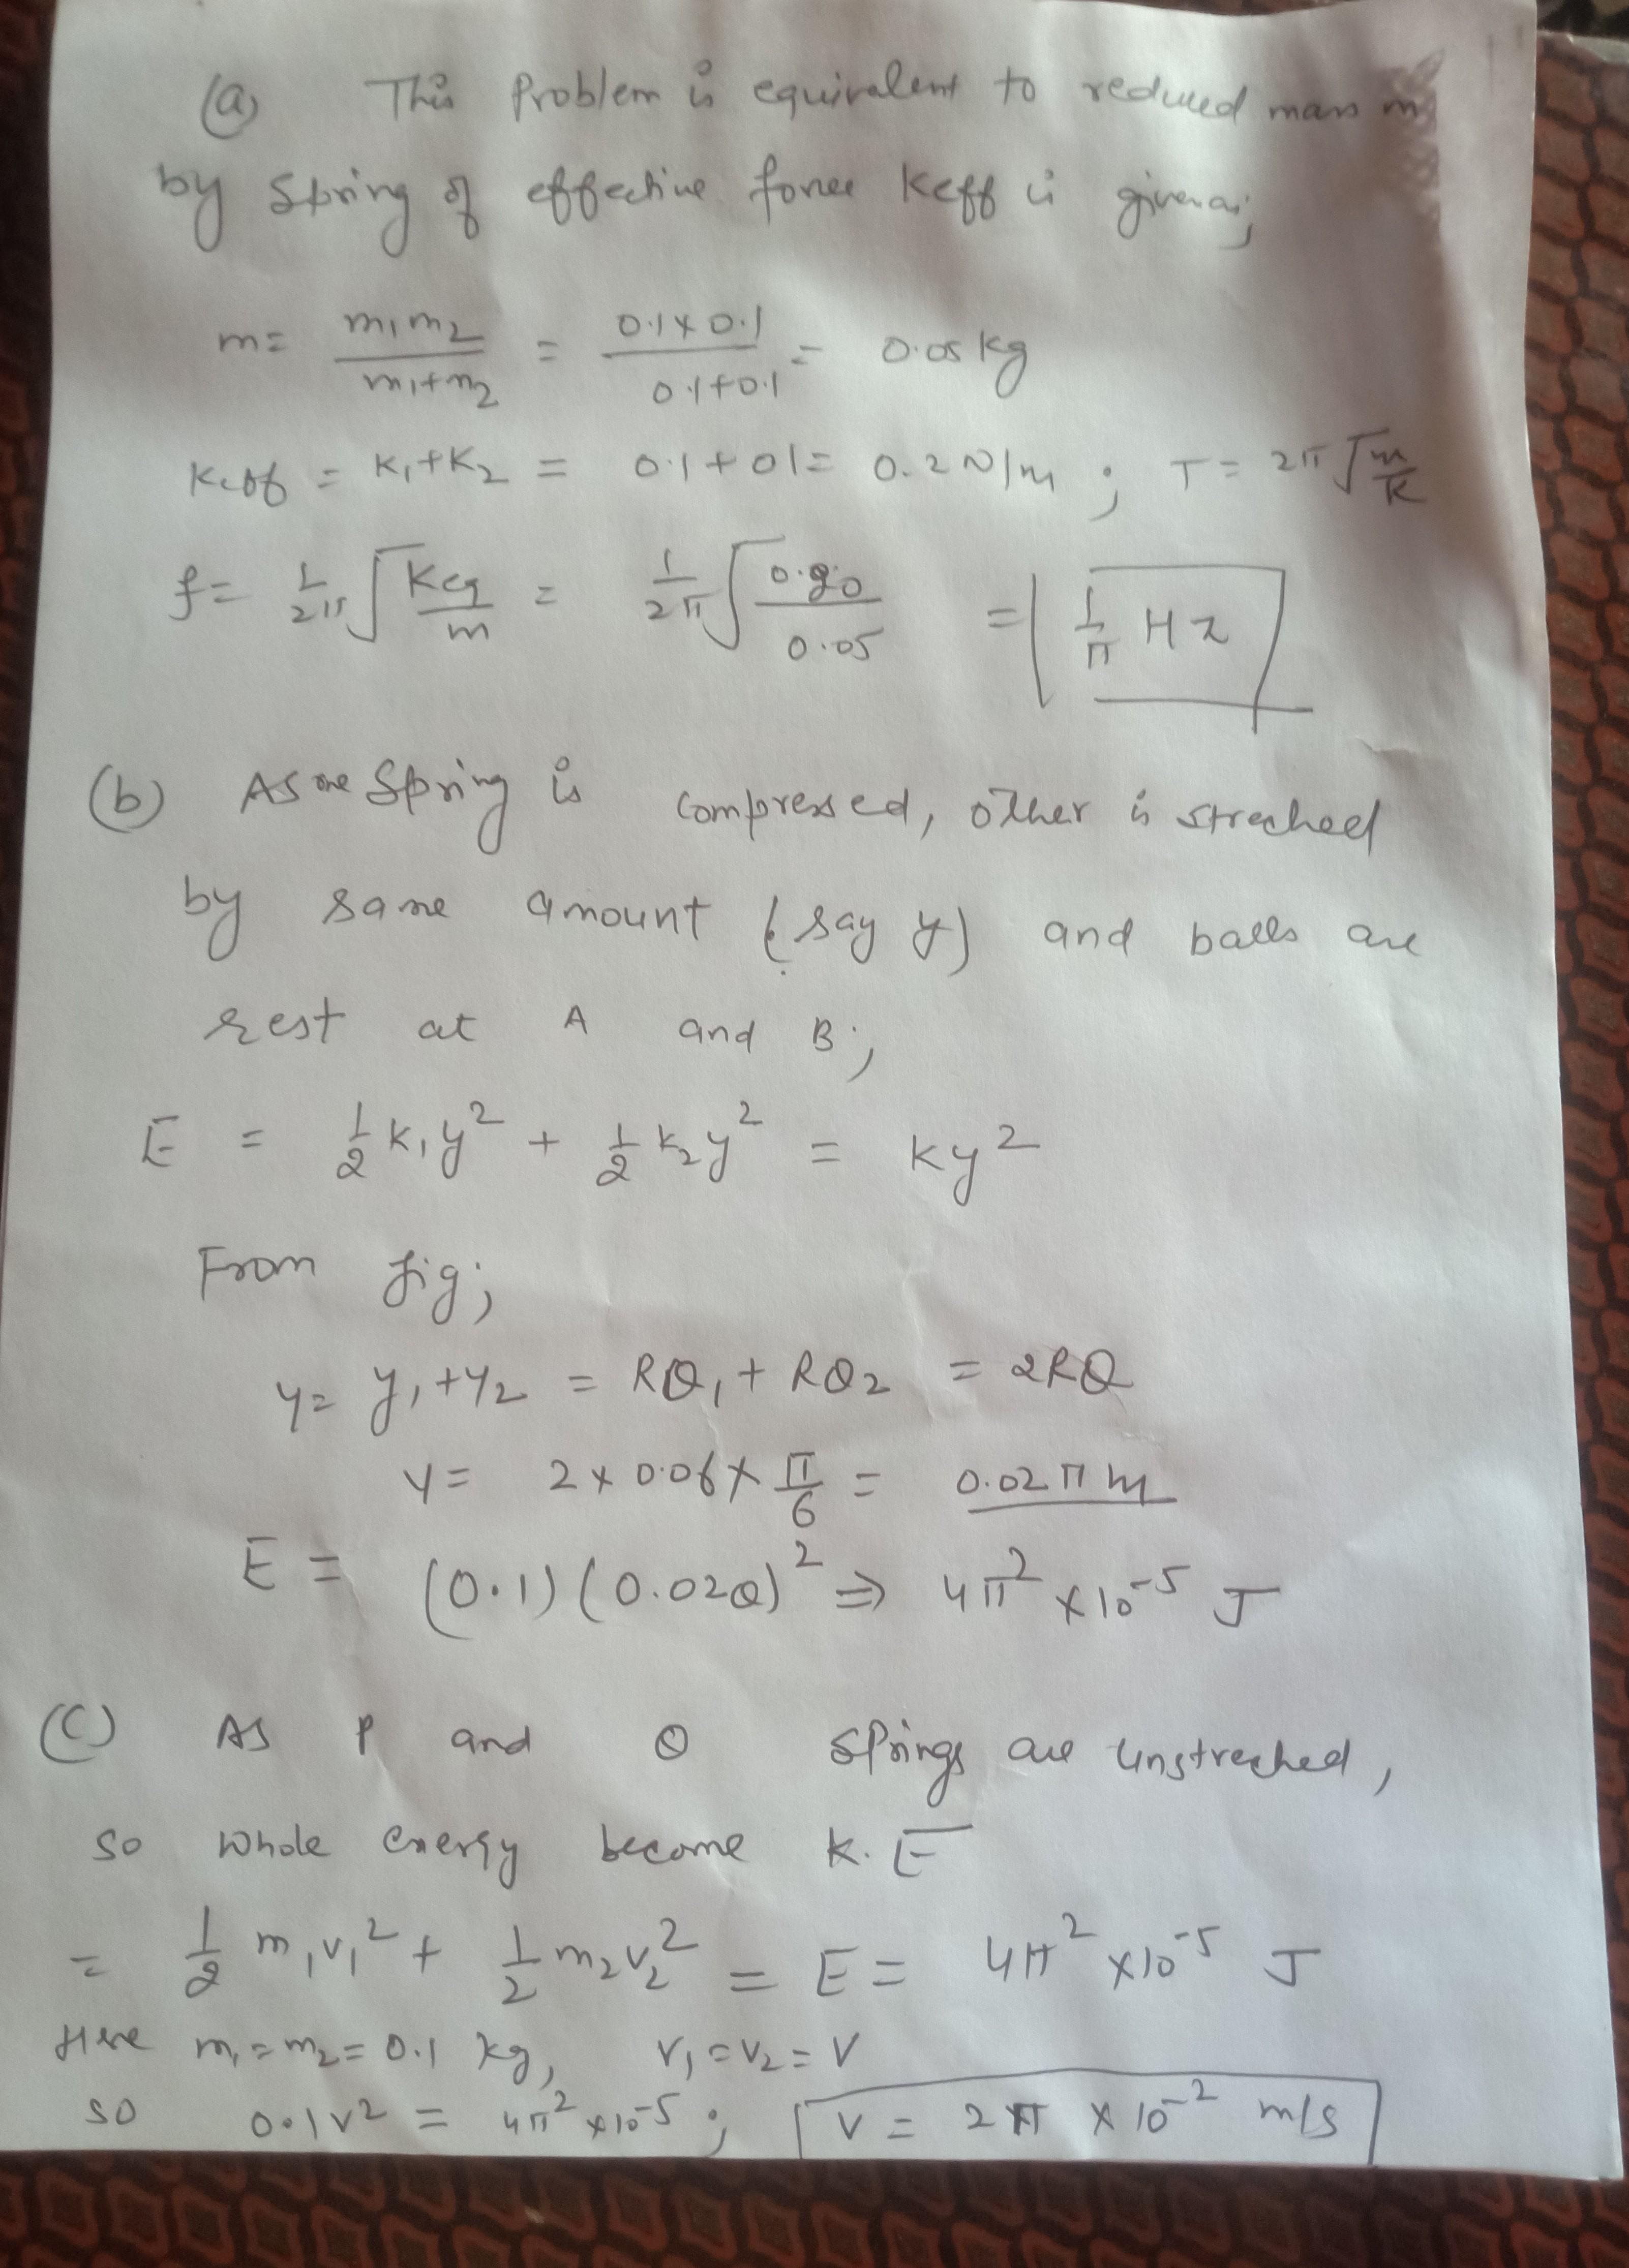 (a) This Problem is equivalent to reduced mass m
by Spring of effective force Keff is given as;
m = m₁m₂/m₁+m₂ = 0.1×0.1/0.1+0.1 = 0.05 kg
Keff = K₁+K₂ = 0.1+01 = 0.2 N/m ; T = 2π√m/K
f = 1/2π √Keq/m = 1/2π √0.20/0.05 = 1/π Hz
(b) As one Spring is compressed, other is streched
by same amount (say y) and balls are
rest at A and B;
E = 1/2 K₁y² + 1/2 K₂y² = Ky²
From fig;
y = y₁+y₂ = RQ₁ + RQ₂ = 2RQ
y = 2 × 0.06 × π/6 = 0.02π m
E = (0.1)(0.02Q)² ⇒ 4π² × 10⁻⁵ J
(C) As P and Q Springs are unstreched,
so whole energy become K.E
= 1/2 m₁v₁² + 1/2 m₂v₂² = E = 4π² × 10⁻⁵ J
Here m₁ = m₂ = 0.1 kg, v₁ = v₂ = V
so 0.1v² = 4π² × 10⁻⁵ ; V = 2π × 10⁻² m/s